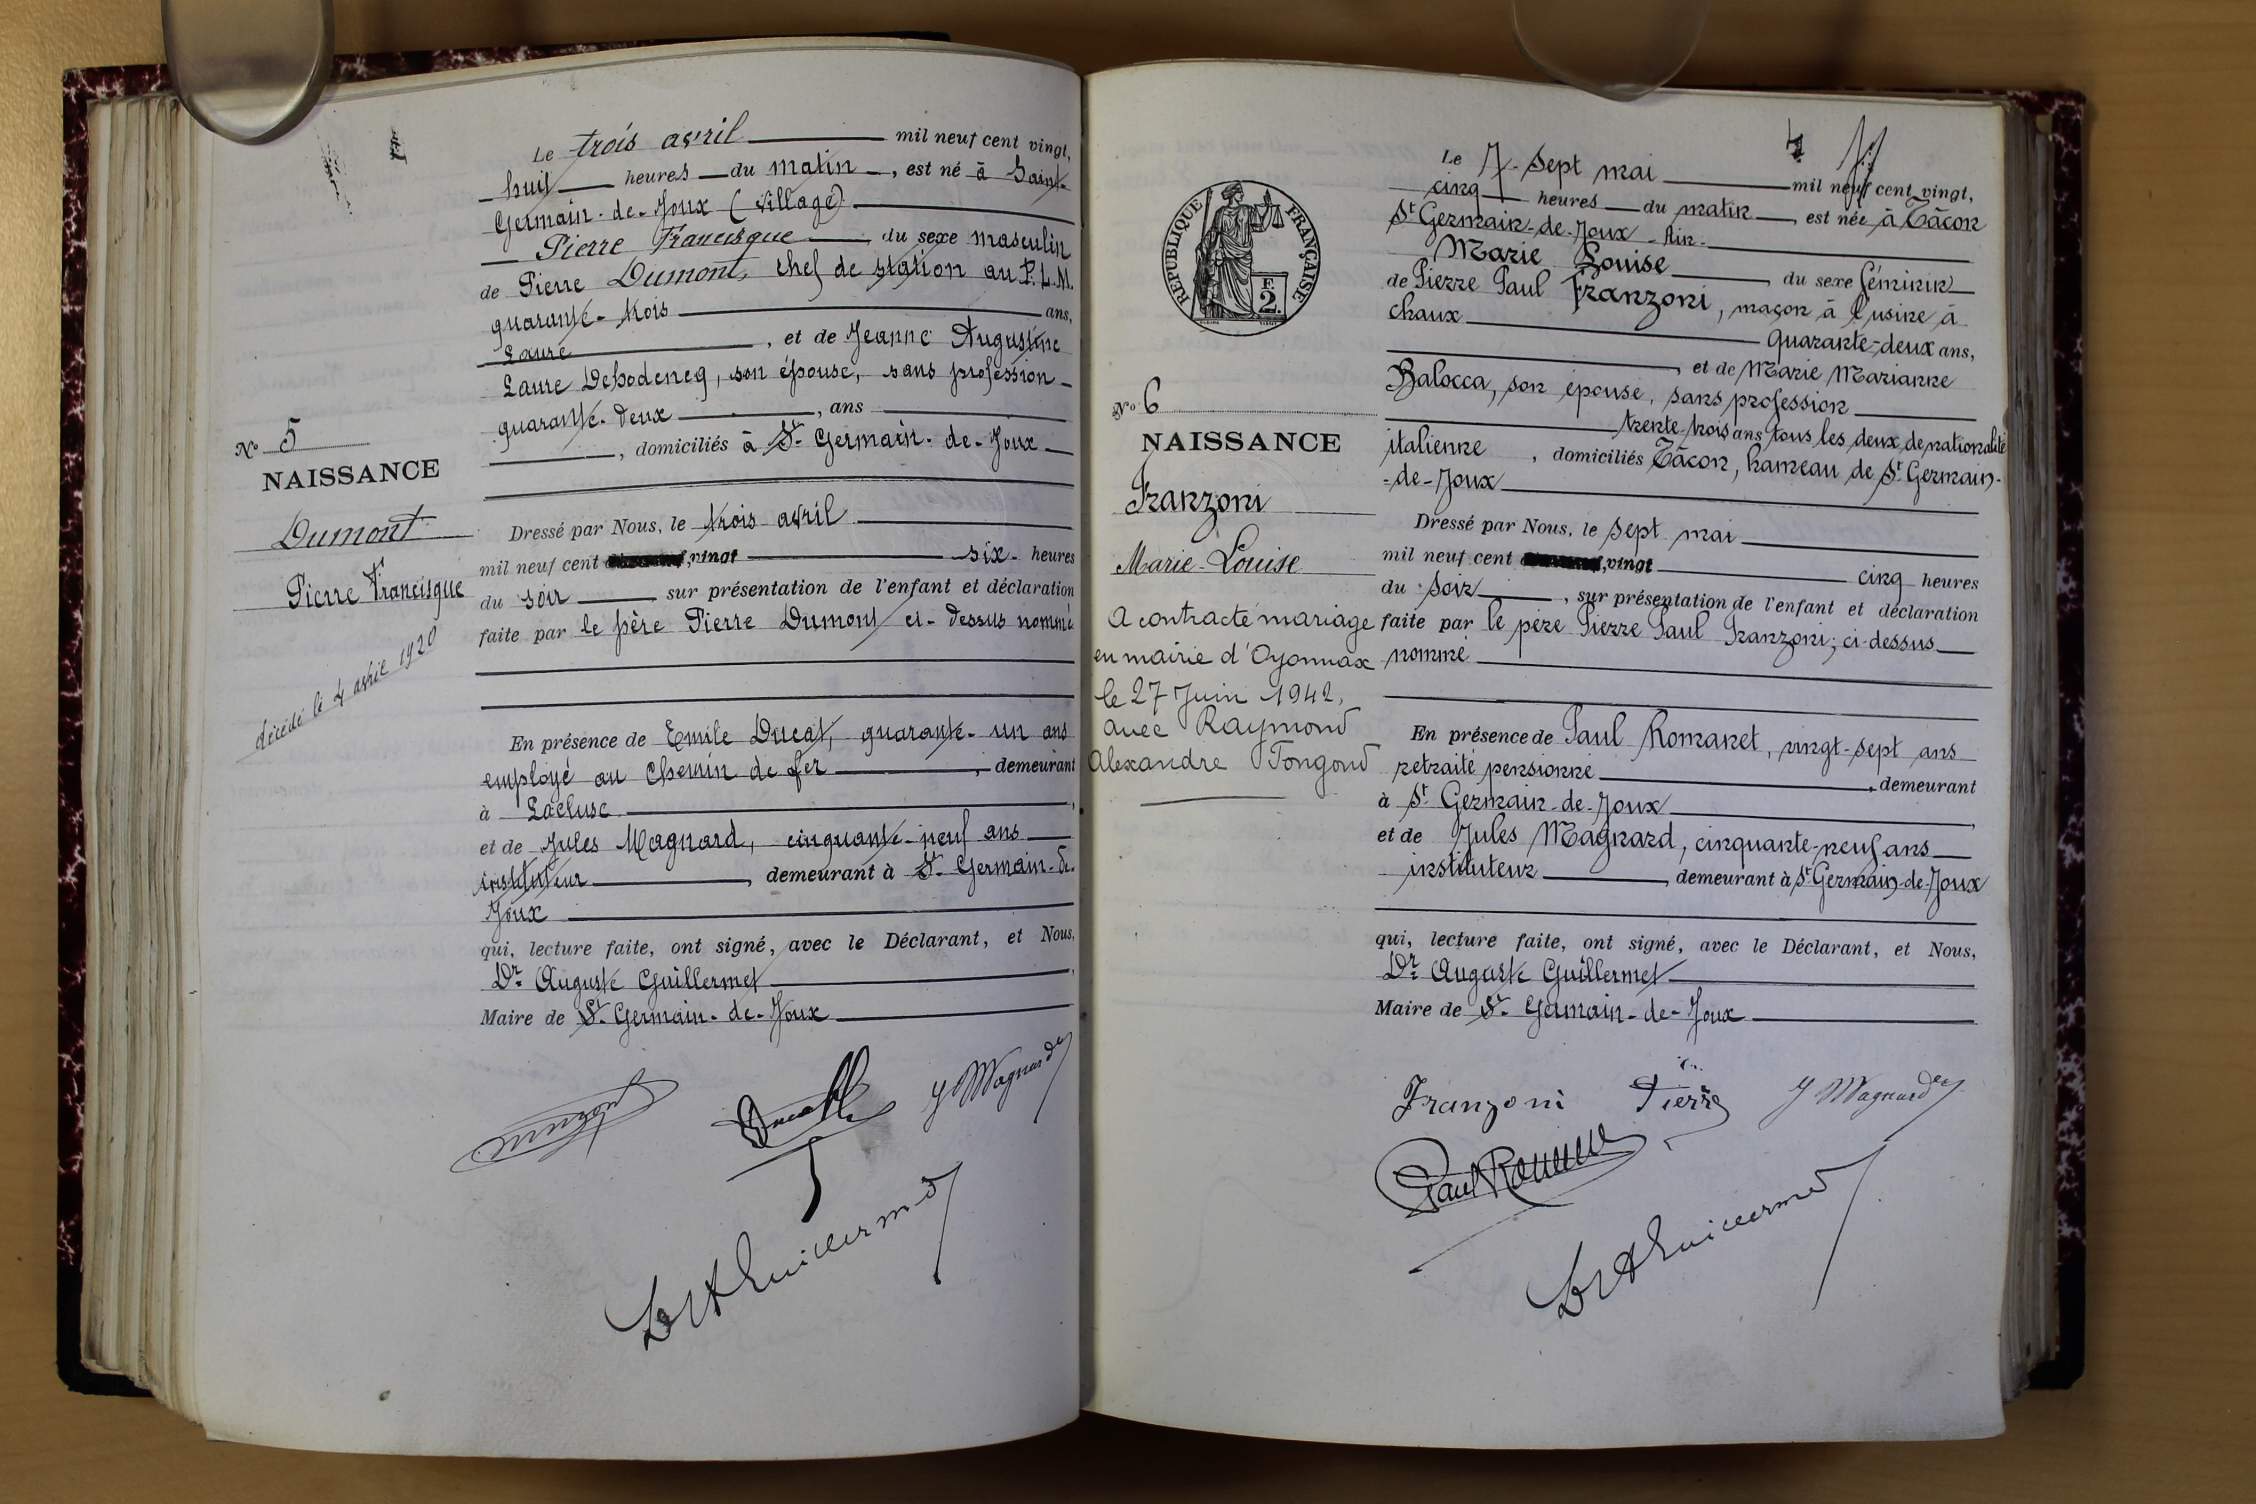 Le trois avril mil neuf cent vingt,
huit heures du matin, est né à Saint-
Germain-de-Joux (village)
Pierre Francisque du sexe masculin
de Pierre Dumont, chef de station au P.L.M.
quarante-trois ans,
Laure, et de Jeanne Augustine
Laure Dehodencq, son épouse, sans profession
quarante-deux, ans
, domiciliés à St-Germain-de-Joux
Nº 5
NAISSANCE
Dumont
Pierre Francisque
décédé le 4 avril 1920
Dressé par Nous, le trois avril
mil neuf cent vingt six heures
du soir sur présentation de l'enfant et déclaration
faite par le père Pierre Dumont ci-dessus nommé
En présence de Emile Ducat, quarante-un ans
employé au chemin de fer, demeurant
à Lacluse,
et de Jules Magnard, cinquante-neuf ans
instituteur, demeurant à St-Germain-de-
Joux
qui, lecture faite, ont signé, avec le Déclarant, et Nous,
Dr Auguste Guillermet,
Maire de St-Germain-de-Joux
J Magnard
Dr A Guillermet
4
RÉPUBLIQUE FRANÇAISE
F.
2.
Le 7 - sept mai mil neuf cent vingt,
cinq heures du matin, est née à Tâcon
St Germain-de-Joux - Ain -
Marie Louise du sexe féminin
de Pierre Paul Franzoni, maçon à l'usine à
chaux
quarante-deux ans,
, et de Marie Marianne
Balocca, son épouse, sans profession
trente-trois ans tous les deux de nationalité
italienne, domiciliés Tâcon, hameau de St Germain-
-de-Joux
Nº 6
NAISSANCE
Franzoni
Marie-Louise
A contracté mariage
en mairie d'Oyonnax
le 27 Juin 1942,
avec Raymond
Alexandre Tongond
Dressé par Nous, le sept mai
mil neuf cent vingt cinq heures
du soir, sur présentation de l'enfant et déclaration
faite par le père Pierre Paul Franzoni, ci-dessus
nommé
En présence de Paul Romanet, vingt-sept ans
retraité pensionné, demeurant
à St Germain-de-Joux,
et de Jules Magnard, cinquante-neuf ans
instituteur, demeurant à St Germain-de-Joux
qui, lecture faite, ont signé, avec le Déclarant, et Nous,
Dr Auguste Guillermet
Maire de St-Germain-de-Joux
Franzoni Pierre J Magnard
Paul Romanet
Dr A Guillermet